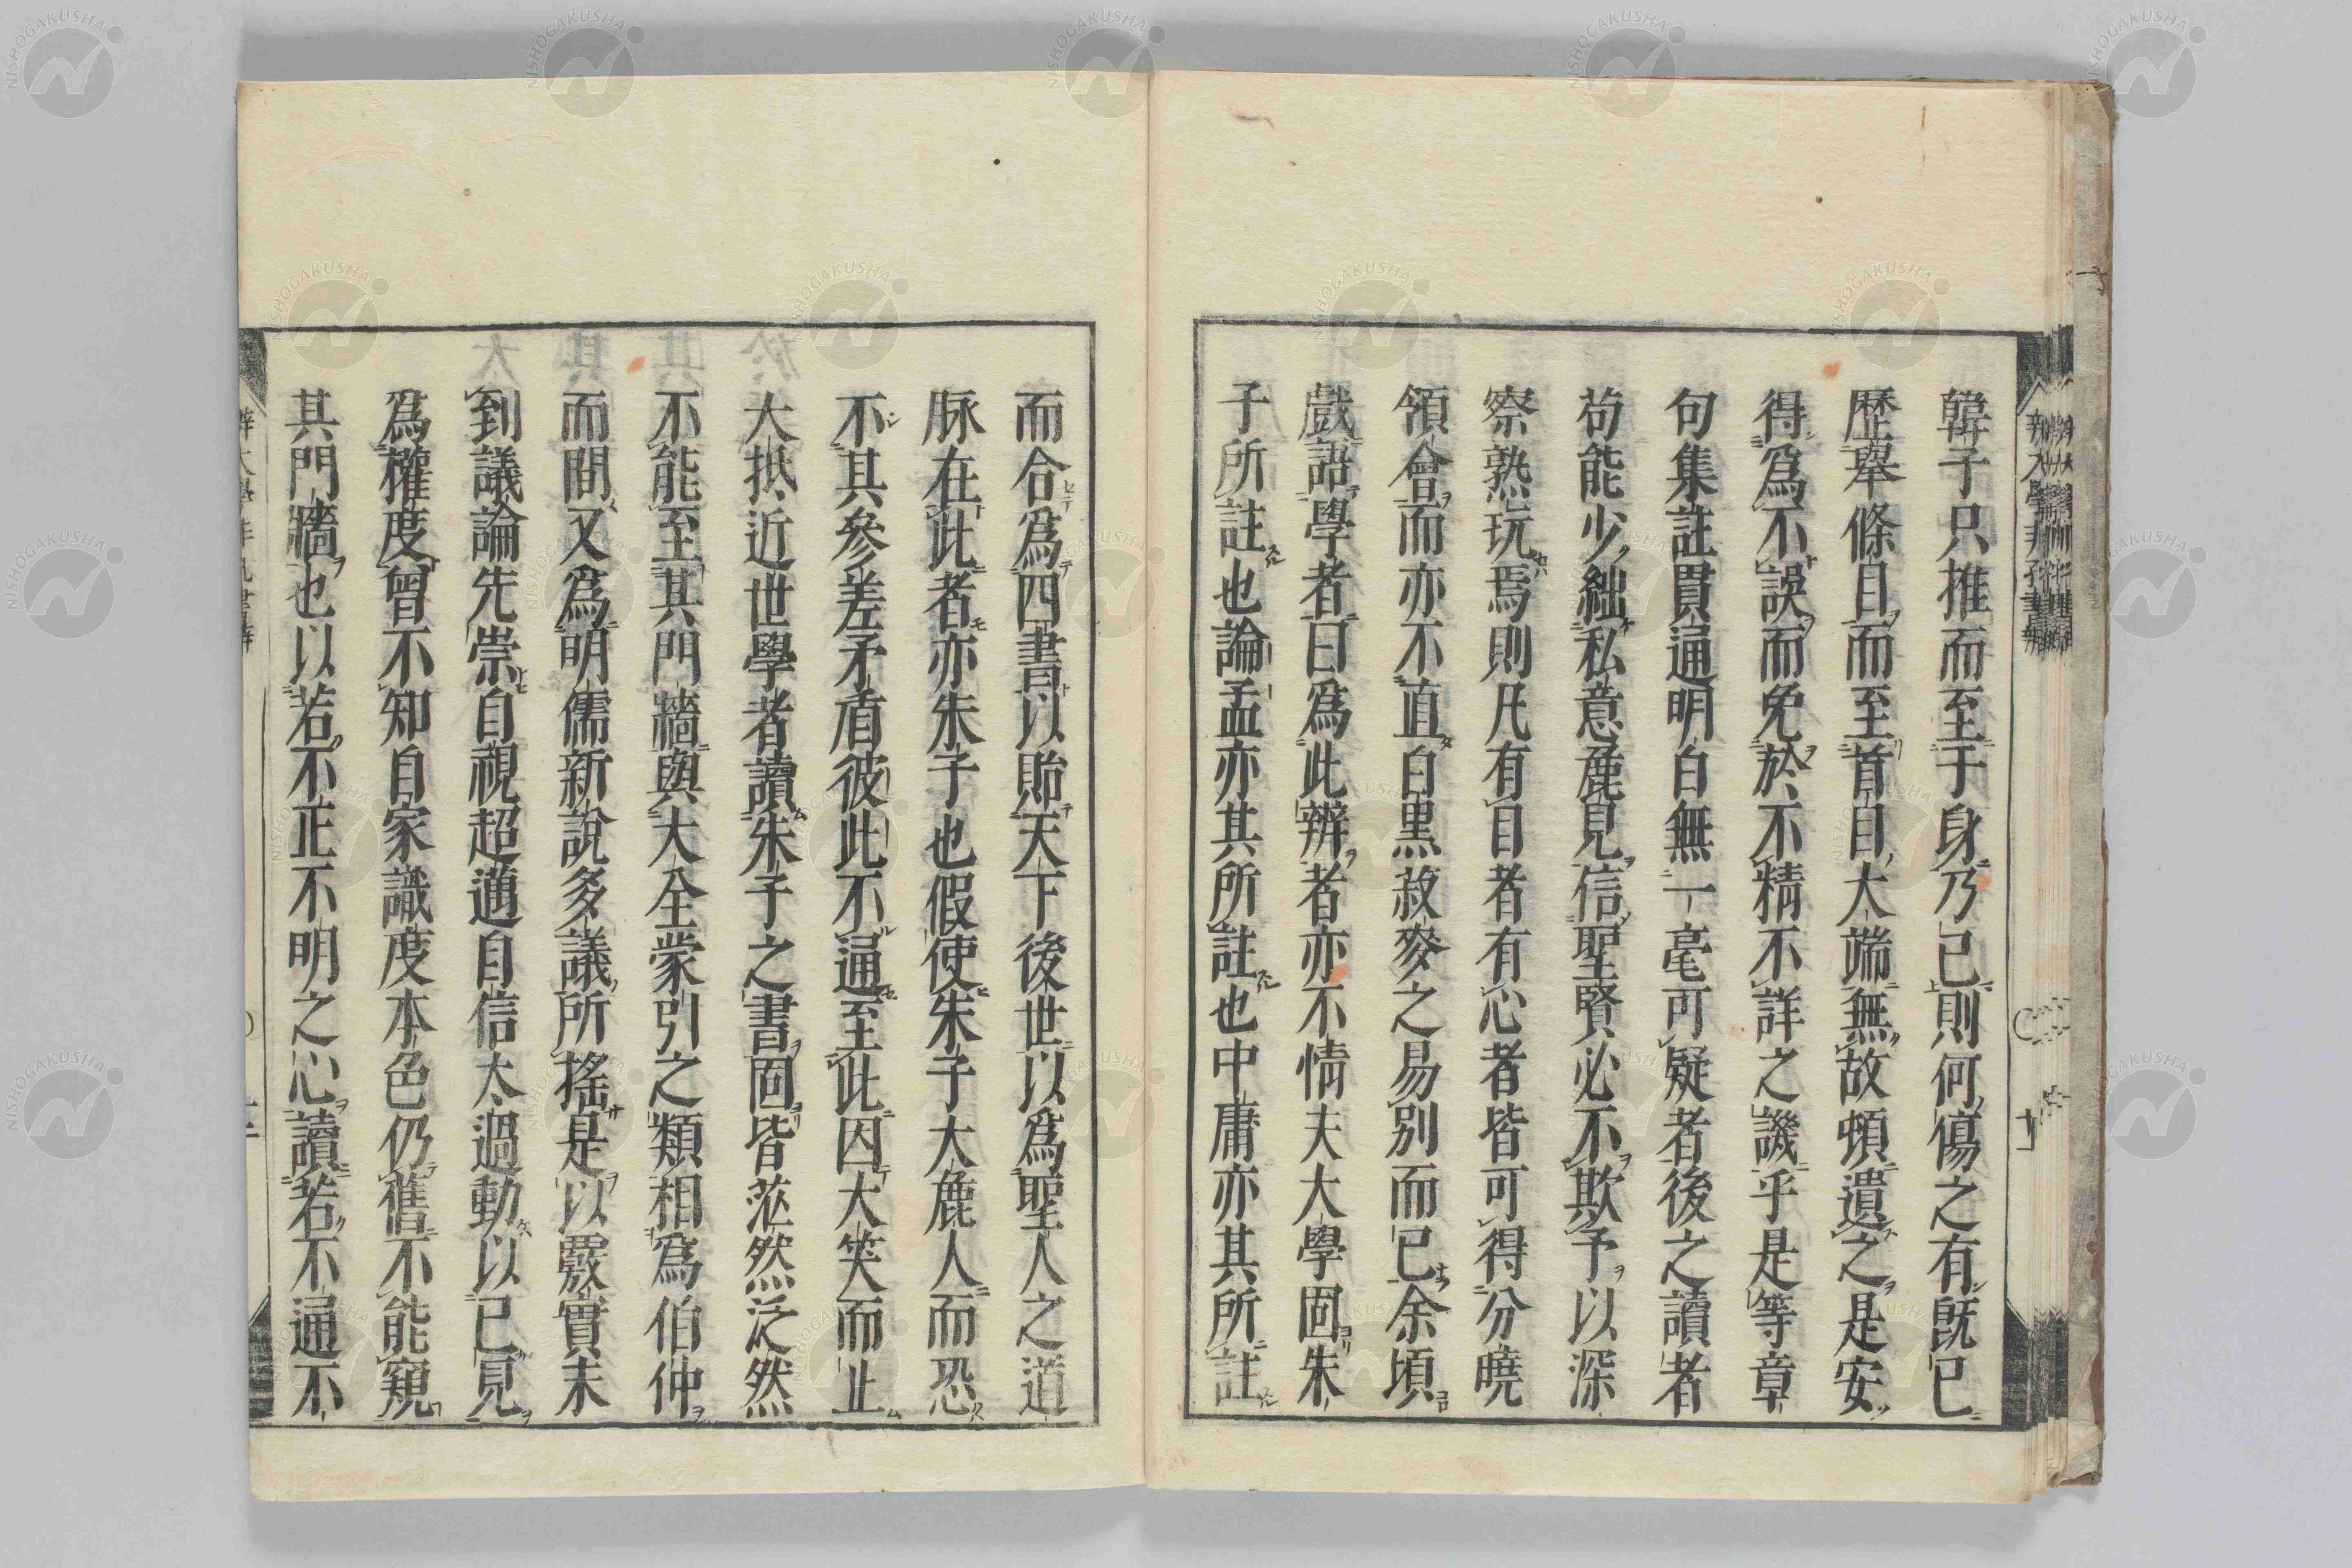 韓子只推而至于身乃已則何傷之有既已
歷舉條目而至首目大端無故頓遺之是安
得爲不誤而免於不精不詳之譏乎是等章
句集註貫通明白無一毫可疑者後之讀者
苟能少絀私意麁見信聖賢必不欺予以深
察熟玩焉則凡有目者有心者皆可得分曉
領會而亦不直白黒菽麥之易別而已余頃
戲語學者曰爲此辨者亦不情夫大學固朱
子所註也論孟亦其所註也中庸亦其所註
而合爲四書以貽天下後世以爲聖人之道
脉在此者亦朱子也假使朱子大麁人而恐
不其參差矛盾彼此不通至此因大笑而止
大抵近世學者讀朱子之書固皆茫然泛然
不能至其門牆與大全蒙引之類相爲伯仲
而間又爲明儒新說多議所搖是以覈實未
到議論先崇自視超邁自信太過動以己見
爲權度曾不知自家識度本色仍舊不能窺
其門牆也以若不正不明之心讀若不通不
辨大學非孔書辨
NISHOGAKUSHA